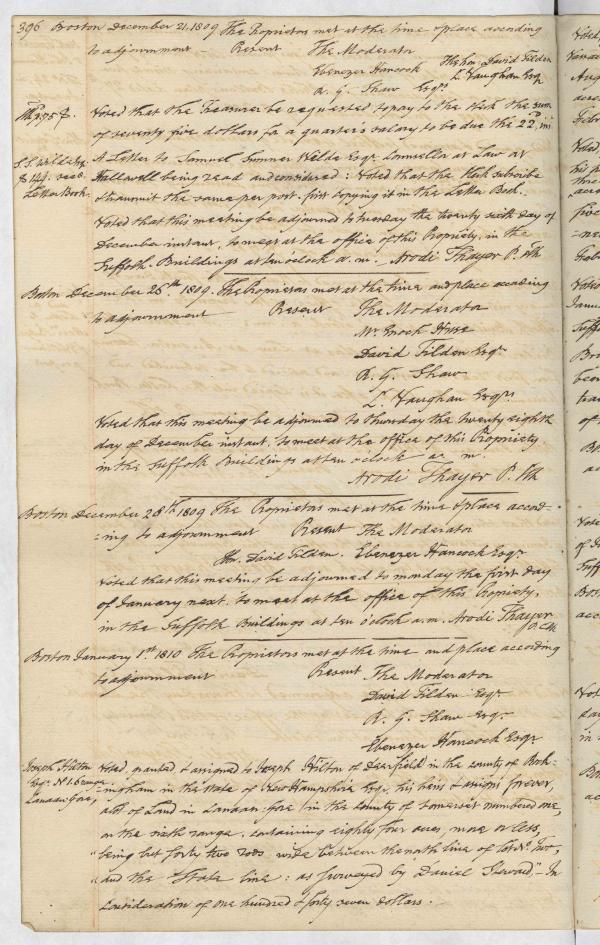 396 Boston December 21. 1809 The Proprietors met at the time & place according
to adjournment - Present The Moderator
Ebenezer Hancock The hon. David Tilden
R. G. Shaw Esqrs L. Vaughan Esqr
75$. Voted that the Treasurer be requested to pay to the Clerk the sum
of seventy five dollars for a quarter's salary to be due the 22d in
S. S. Wilde Esqr
$144. see
Letter Book.
A Letter to Samuel Sumner Wilde Esqr. Counsellor at Law at
Hallowell being read and considered: Voted that the Clerk subscribe
& transmit the same per post, first copying it in the Letter Book.
Voted that this meeting be adjourned to tuesday the twenty sixth day of
December instant, to meet at the office of this Propriety, in the
Suffolk Buildings at ten oclock a.m. Arodi Thayer P. Clk
Boston December 26th. 1809. The Proprietors met at the time and place according
to adjournment Present The Moderator
Mr. Enoch Huse
David Tilden Esqr
R. G. Shaw
L. Vaughan Esqrs
Voted that this meeting be adjourned to thursday the twenty eighth
day of December instant, to meet at the office of this Propriety
in the Suffolk Buildings at ten o'clock a. m.
Arodi Thayer P. Clk
Boston December 28th 1809 The Proprietors met at the time & place accord=
=ing to adjournment Present The Moderator
Hon. David Tilden. Ebenezer Hancock Esqr
Voted that this meeting be adjourned to monday the first day
of January next, to meet at the office of this Propriety,
in the Suffolk Buildings at ten o'clock a.m. Arodi Thayer
P. Clk
Boston January 1st. 1810 The Proprietors met at the time and place according
to adjournment Present The Moderator
David Tilden Esqr
R. G. Shaw Esqr
Ebenezer Hancock Esqr
Joseph Hilton
Esqr. No 1. 6 range
Canaan Gore,
Voted, granted & assigned to Joseph Hilton of Deerfield in the county of Rock-
ingham in the state of New Hampshire Esqr. his heirs & assigns forever,
a lot of Land in Canaan gore in the County of Somerset numbered one,
on the sixth range, containing eighty four acres, more or less,
"being but forty two rods wide between the north line of lot No. Two,
"and the State line: as surveyed by Daniel Steward," - In
Consideration of one hundred & forty seven dollars.